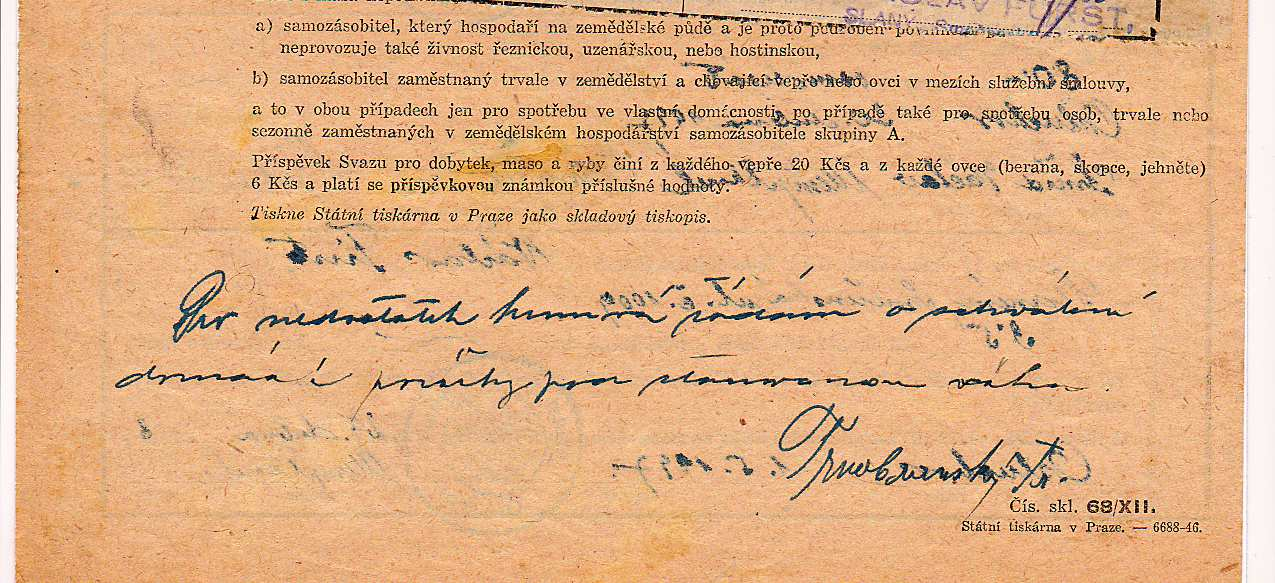 SLANÝ
a) samozásobitel, který hospodaří na zemědělské půdě a je proto
neprovozuje také živnost řeznickou, uzenářskou, nebo hostinskou,
b) samozásobitel zaměstnaný trvale v zemědělství a chovající vepře nebo ovci v mezích služební smlouvy,
a to v obou případech jen pro spotřebu ve vlastní domácnosti, po případě také pro spotřebu osob, trvale nebo
sezonně zaměstnaných v zemědělském hospodářství samozásobitele skupiny A.
Příspěvek Svazu pro dobytek, maso a ryby činí z každého vepře 20 Kčs a z každé ovce (berana, skopce, jehněte)
6 Kčs a platí se příspěvkovou známkou příslušné hodnoty.
Tiskne Státní tiskárna v Praze jako skladový tiskopis.
Pro nedostatek krmiva žádám o schválení
domácí porážky pod stanovenou váhu.
Čís. skl. 68/XII.
Státní tiskárna v Praze. — 6688-46.